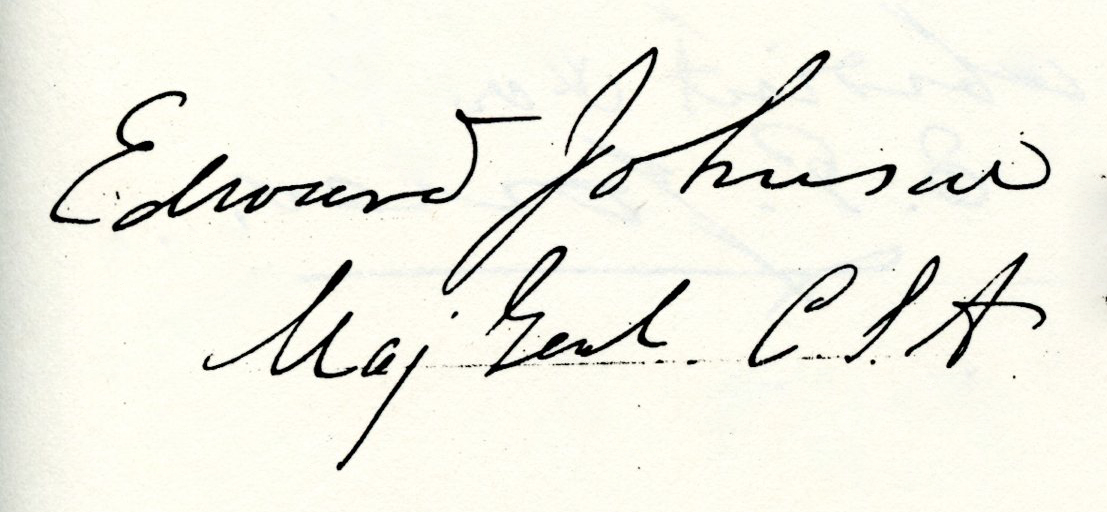 Edward Johnson
Maj Genl. C. S. A.